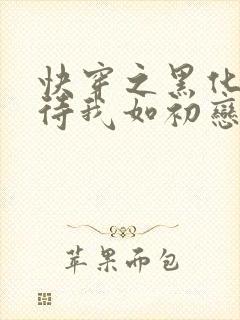 快穿之黑化
待我如初戀
苹果而包